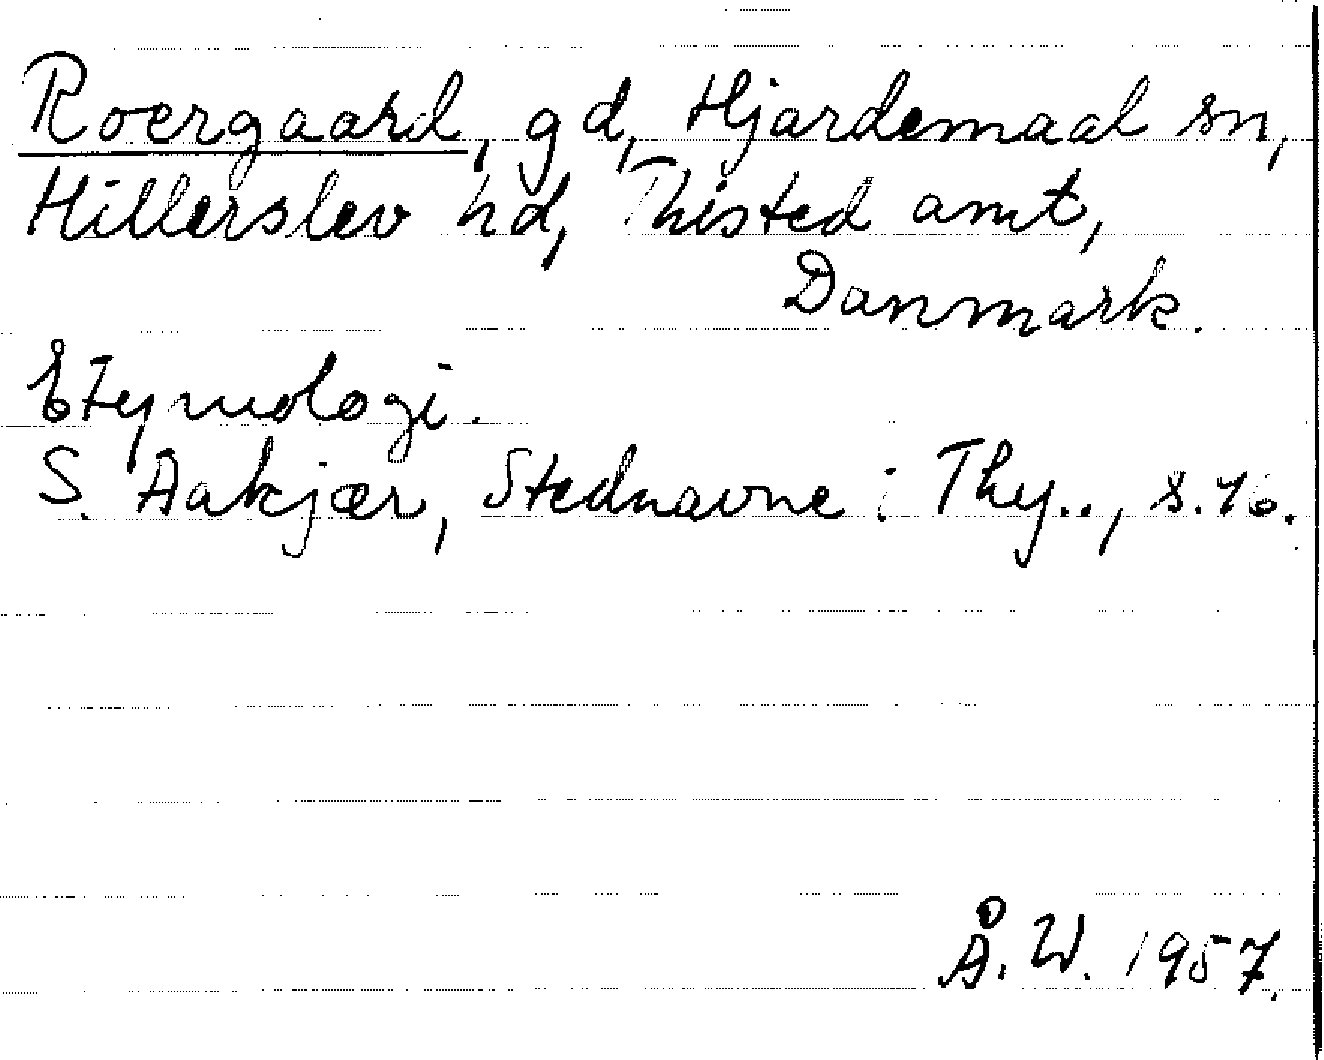 Roergaard, gd, Hjardemaal sn,
Hillerslev hd, Thisted amt,
Danmark.
Etymologi.
S. Aakjær, Stednavne i Thy.., s. 76.
Å. W. 1957.